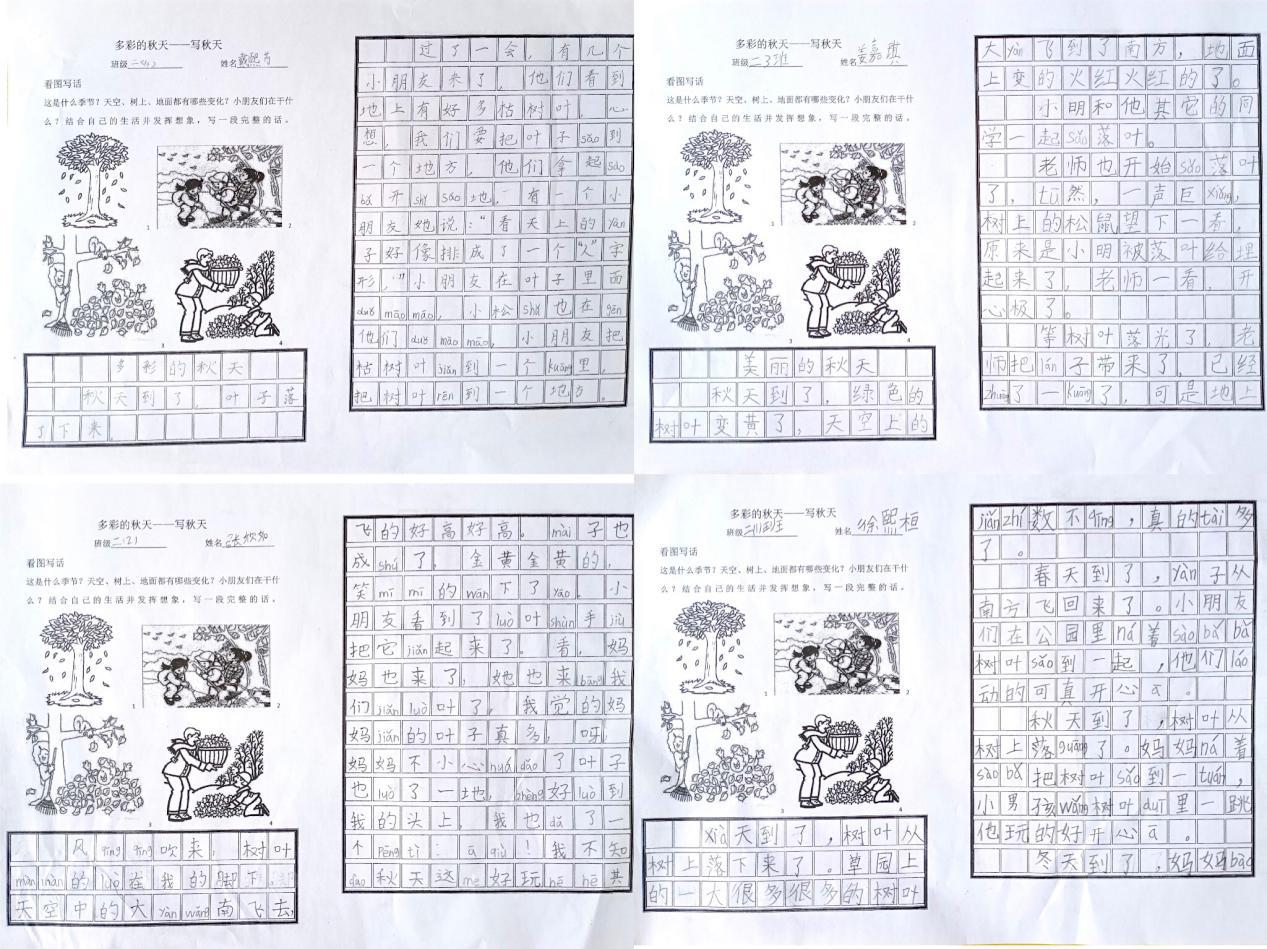 多彩的秋天——写秋天
班级 姓名
看图写话
这是什么季节？天空、树上、地面都有哪些变化？小朋友们在干什
么？结合自己的生活并发挥想象，写一段完整的话。
1
2
3
4
多彩的秋天
秋天到了，叶子落
了下来。
过了一会，有几个
小朋友来了，他们看到
地上有好多枯树叶，心
想，我们要把叶子sǎo到
一个地方，他们拿起sào
bǎ开shǐ sǎo地，有一个小
朋友她说：“看天上的yàn
子好像排成了一个“人”字
形，”小朋友在叶子里面
duǒ māo māo，小松shǔ也在gēn
他们duǒ māo māo，小朋友把
枯树叶jiǎn到一个kuāng里，
把树叶rēn到一个地方。
多彩的秋天——写秋天
班级二3班 姓名
看图写话
这是什么季节？天空、树上、地面都有哪些变化？小朋友们在干什
么？结合自己的生活并发挥想象，写一段完整的话。
1
2
3
4
美丽的秋天
秋天到了，绿色的
树叶变黄了，天空上的
大yàn飞到了南方，地面
上变的火红火红的了。
小明和他其它的同
学一起sǎo落叶。
老师也开始sǎo落叶
了，tū然，一声巨xiǎng，
树上的松鼠望下一看，
原来是小明被落叶给埋
起来了，老师一看，开
心极了。
等树叶落光了，老
师把lán子带来了，已经
zhuāng了一kuāng了，可是地上
多彩的秋天——写秋天
班级 姓名
看图写话
这是什么季节？天空、树上、地面都有哪些变化？小朋友们在干什
么？结合自己的生活并发挥想象，写一段完整的话。
1
2
3
4
风qīng qīng吹来，树叶
màn màn的luò在我的脚下，
天空中的大yàn wǎng南飞去，
飞的好高好高。mài子也
成shú了，金黄金黄的，
笑mī mī的wān下了yāo。小
朋友看到了luò叶shùn手jiù
把它jiǎn起来了。看，妈
妈也来了，她也来bāng我
们jiǎn luò叶了，我觉的妈
妈jiǎn的叶子真多，呀，
妈妈不小心 了叶子
也luò了一地，zhèng好luò到
我的头上，我也dǎ了一
个pēn tì：ā qiù！我不知
dào秋天这me好玩
多彩的秋天——写秋天
班级 姓名徐熙桓
看图写话
这是什么季节？天空、树上、地面都有哪些变化？小朋友们在干什
么？结合自己的生活并发挥想象，写一段完整的话。
1
2
3
4
Xià天到了，树叶从
树上落下来了。草园上
的一大很多很多的树叶
jiǎn zhí数不qīng，真的tài多
了。
春天到了，yàn子从
南方飞回来了。小朋友
们在公园里ná着sào bǎ bǎ
树叶sǎo到一起，他们láo
动的可真开心ā。
秋天到了，树叶从
树上落guāng了。妈妈ná着
sào bǎ把树叶sǎo到一tuán，
小男孩wǎng树叶duī里一跳
他玩的好开心ā。
冬天到了，妈妈bǎo